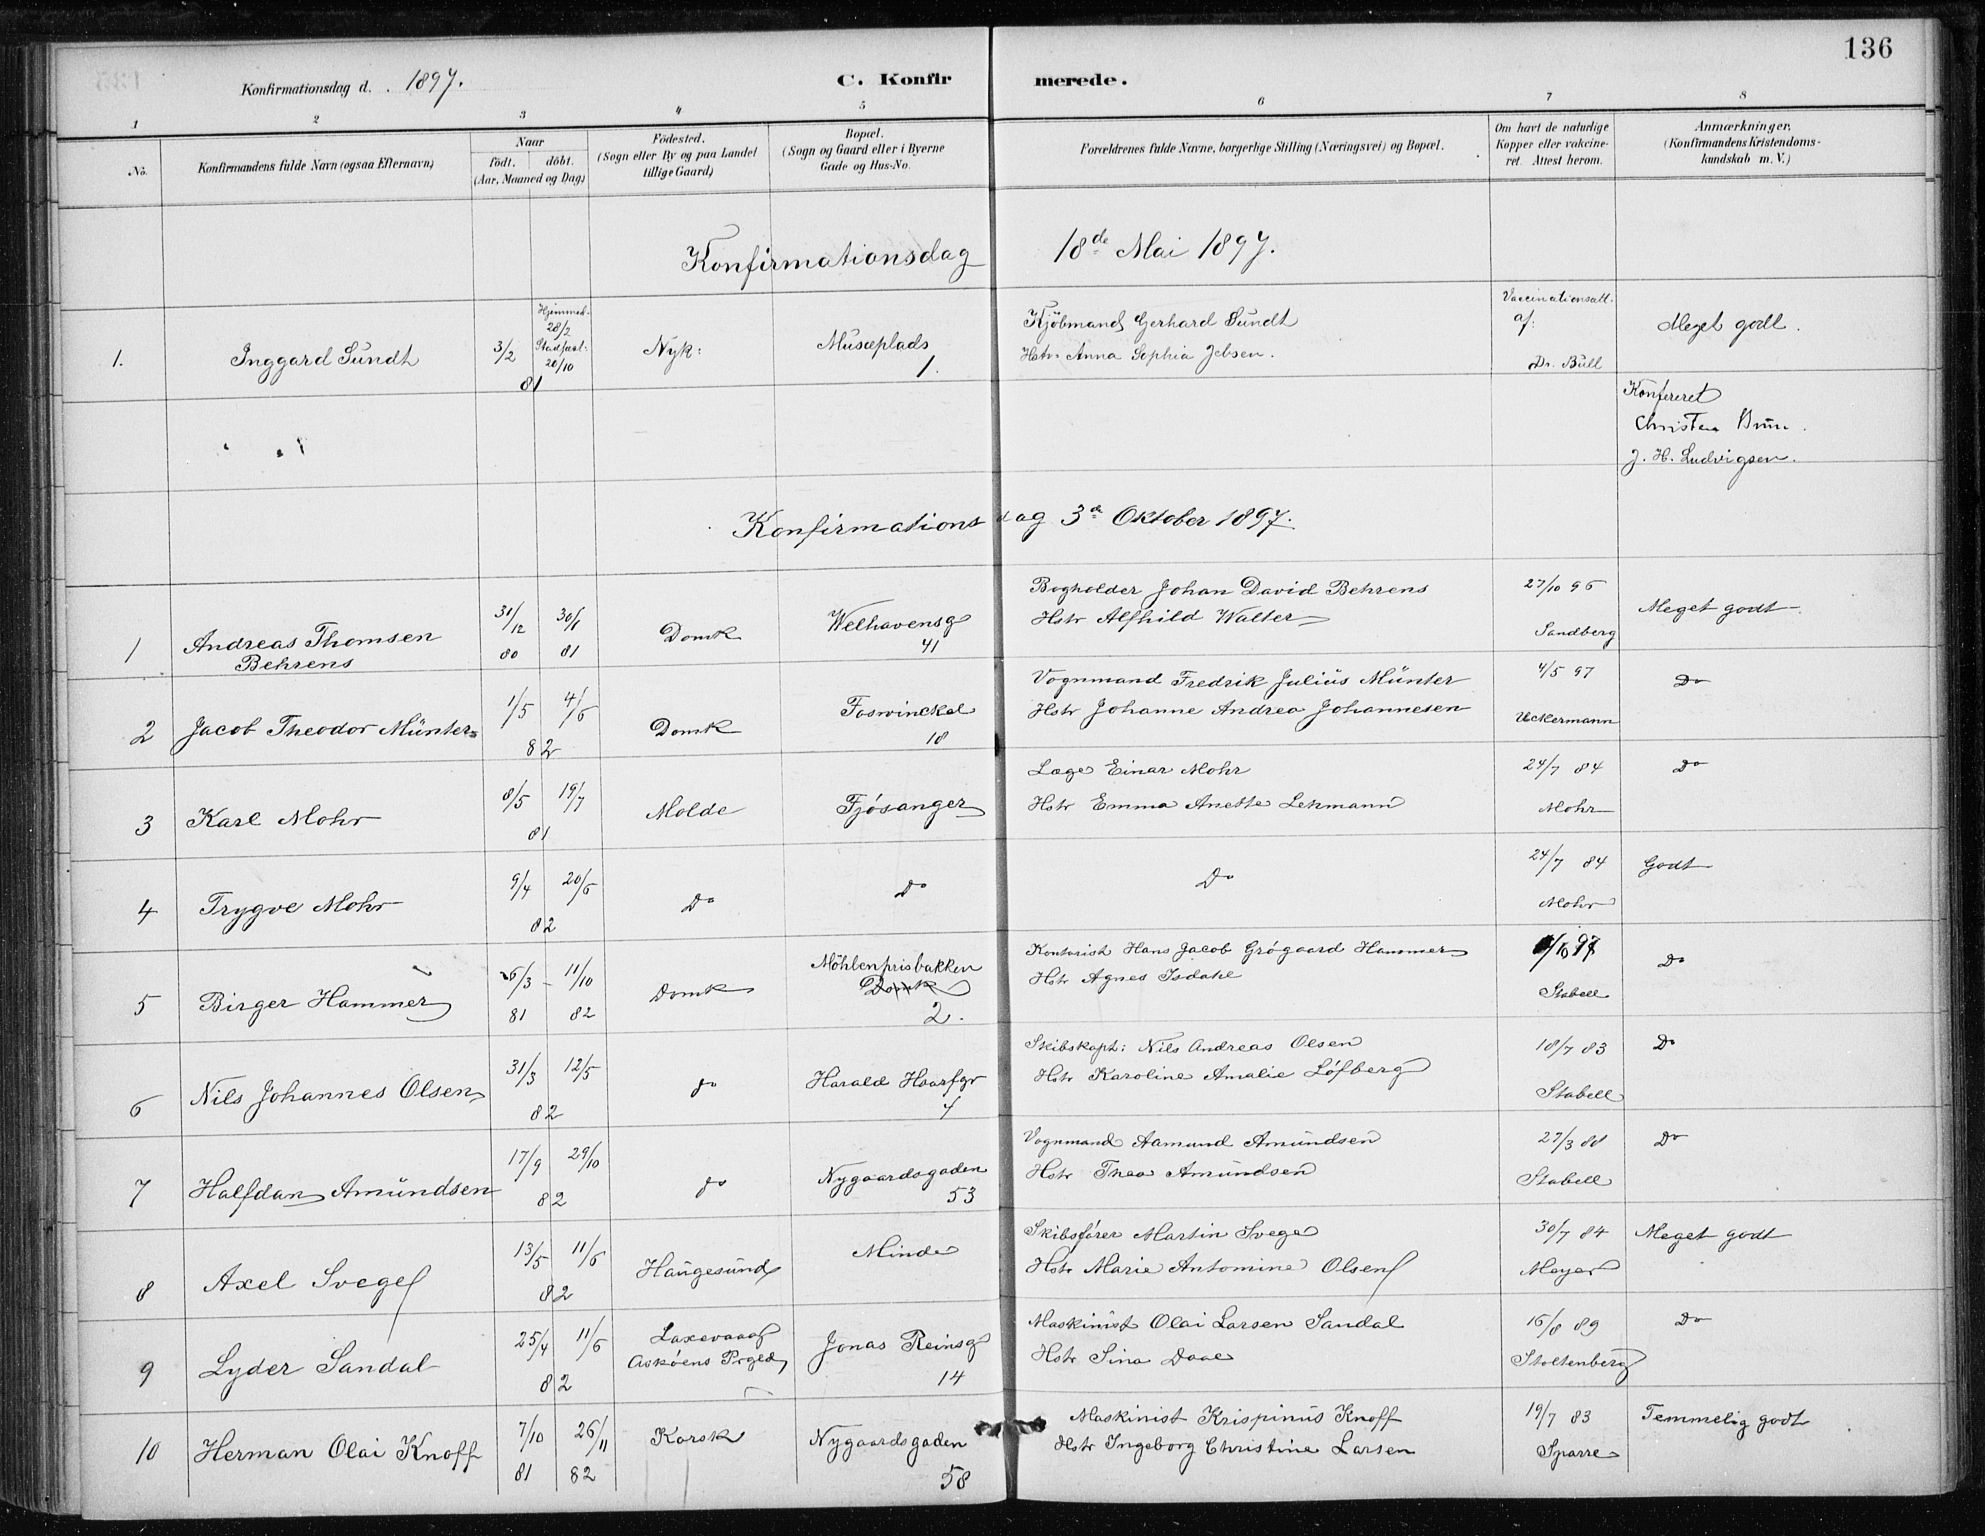 136
Konfirmationsdag d. 1897.
C. Konfirmerede.
1 2 3 4 5 6 7 8
No. Konfirmandens fulde Navn (ogsaa Efternavn) Naar født. døbt. (Aar, Maaned og Dag) Fødested. (Sogn eller By og paa Landet tillige Gaard) Bopæl. (Sogn og Gaard eller i Byerne Gade og Hus-No. Forældrenes fulde Navne, borgerlige Stilling (Næringsvei) og Bopæl. Om havt de naturlige Kopper eller vakcineret. Attest herom. Anmærkninger. (Konfirmandens Kristendomskundskab m. V.)
Konfirmationsdag 18de Mai 1897.
1. Inggard Sundt 3/2 Hjemmed. 28/2 Stadfæst. 20/10 81 Nyk: Musæplads 1. Kjöbmand Gerhard Sundt
Hstr. Anna Sophia Jebsen. Vaccinationsatt. af: Dr. Bull Meget godt.
Konfereret
Christen Brun.
J. H. Ludvigsen.
Konfirmationsdag 3d Oktober 1897.
1 Andreas Thomsen Behrens 31/12 80 30/1 81 Domk Welhavensg 41 Bogholder Johan David Behrens
Hstr Alfhild Walter 27/10 96 Sandberg Meget godt
2 Jacob Theodor Münter 1/5 4/6 82 Domk Foswinckel 18 Vognmand Fredrik Julius Münter
Hstr Johanne Andrea Johannesen 4/5 97 Uckermann Do
3 Karl Mohr 8/5 19/7 81 Molde Fjøsanger Læge Einar Mohr
Hstr Emma Anette Lehmann 24/7 84 Mohr Do
4 Trygve Mohr 9/4 20/6 82 Do Do Do 24/7 84 Mohr Godt
5 Birger Hammer 6/3 81 11/10 82 Domk Möhlenprisbakken Domk 2. Kontorist Hans Jacob Grøgaard Hammer
Hstr Agnes Isdahl 97 Stabell Do
6 Nils Johannes Olsen 31/3 12/5 82 do Harald Haarfgr 4 Skibskapt: Nils Andreas Olsen
Hstr Karoline Amalie Löfberg 18/7 83 Stabell Do
7 Halfdan Amundsen 17/9 29/10 82 do Nygaardsgaden 53 Vognmand Aamund Amundsen
Hstr Thea Amundsen 27/3 88 Stabell Do
8 Axel Svege 13/5 11/6 82 Haugesund Minde Skibsfører Martin Svege
Hstr Marie Antomine Olsen 30/7 84 Meyer Meget godt
9 Lyder Sandal 25/4 11/6 82 Laxevaag Askøens Prgld Jonas Reinsg 14 Maskinist Olai Larsen Sandal
Hstr Sina Daae 16/8 89 Stoltenberg Do
10 Herman Olai Knoff 7/10 81 26/11 82 Korsk Nygaardsgaden 58 Maskinist Krispinus Knoff
Hstr Ingeborg Christine Larsen 19/7 83 Sparre Temmelig godt